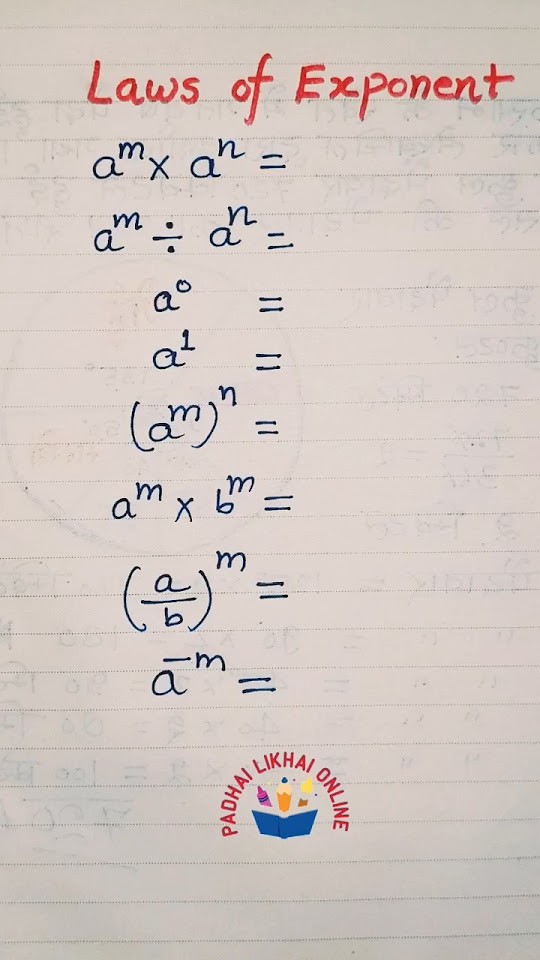 Laws of Exponent
aᵐ × aⁿ =
aᵐ ÷ aⁿ =
a⁰ =
a¹ =
(aᵐ)ⁿ =
aᵐ × bᵐ =
(a/b)ᵐ =
a⁻ᵐ =
PADHAI LIKHAI ONLINE